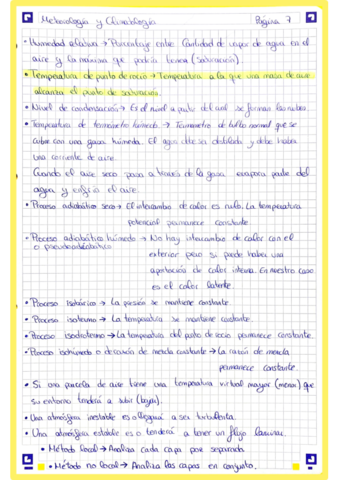 Meteorología y Climatología Página 7
• Humedad relativa → Porcentaje entre Cantidad de vapor de agua en el
aire y la máxima que podría tener (saturación).
• Temperatura de punto de rocío → Temperatura a la que una masa de aire
alcanza el punto de saturación.
• Nivel de condensación → Es el nivel a partir del cual se forman las nubes.
• Temperatura de termómetro húmedo → Termómetro de bulbo normal que se
cubre con una gasa húmeda. El agua debe ser destilada y debe haber
una corriente de aire.
Cuando el aire seco pasa a través de la gasa evapora parte del
agua y enfría el aire.
• Proceso adiabático seco → El intercambio de calor es nulo. La temperatura
potencial permanece constante.
• Proceso adiabático húmedo → No hay intercambio de calor con el
o pseudoadiabático
exterior pero si puede haber una
aportación de calor interna. En nuestro caso
es el calor latente.
• Proceso isobárico → La presión se mantiene constante.
• Proceso isotermo → La temperatura se mantiene constante.
• Proceso isodrotermo → La temperatura del punto de rocío permanece constante.
• Proceso isohúmedo o de razón de mezcla constante → La razón de mezcla
permanece constante.
• Si una parcela de aire tiene una temperatura virtual mayor (menor) que
su entorno tenderá a subir (bajar).
• Una atmósfera inestable es o llegará a ser turbulenta.
• Una atmósfera estable es o tenderá a tener un flujo laminar.
• Método local → Analiza cada capa por separado
• Método no local → Analiza las capas en conjunto.